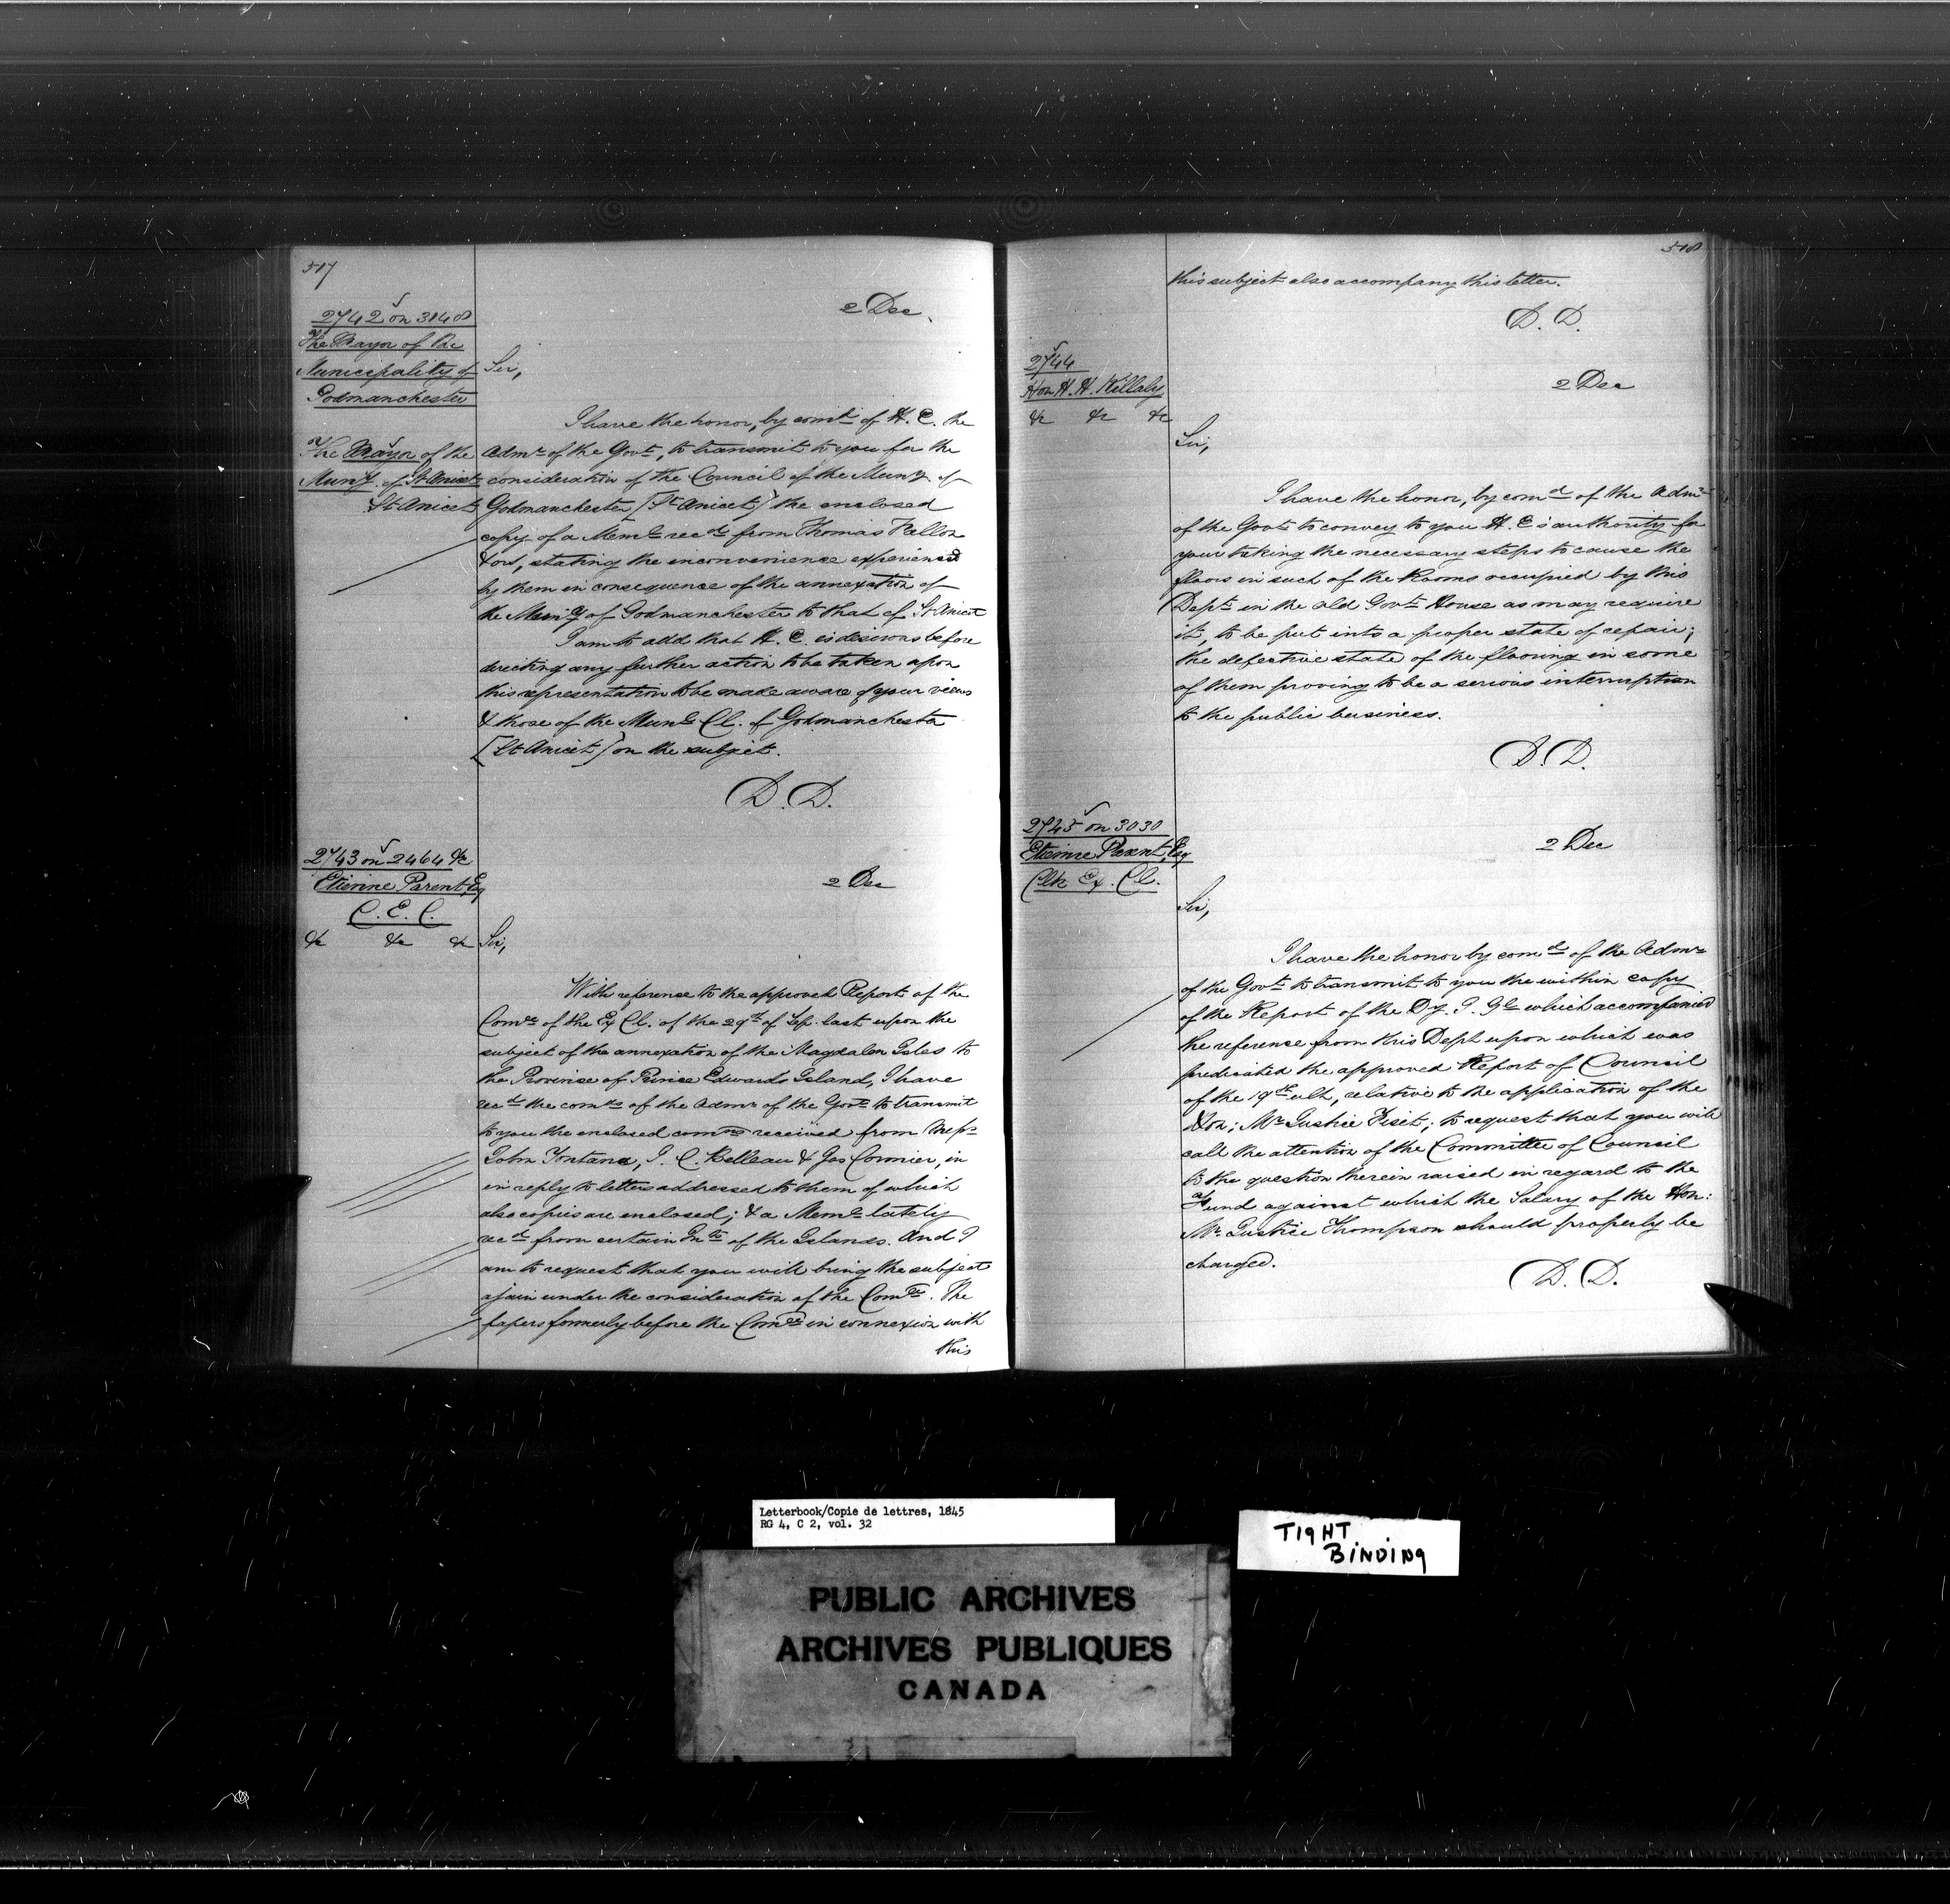 517
2742 on 3148
The Mayor of the
Municipality of
Godmanchester
The Mayor of the
Muny. of St Anicet
St Anicet
2 Dec.
Sir,
I have the honor, by comd of H. E. the
Admr of the Govt, to transmit to you for the
consideration of the Council of the Muny. of
Godmanchester [St Anicet] the enclosed
copy of a Meml recd from Thomas Fallon
& ors, stating the inconvenience experienced
by them in consequence of the annexation of
the Muny of Godmanchester to that of St Anicet
I am to add that H. E. is desirous before
directing any further action to be taken upon
this representation to be made aware of your views
& those of the Munl Cl. of Godmanchester
[St Anicet] on the subject.
D. D.
2743 on 2464 &c
Etienne Parent, Esq
C. E. C.
&c &c &c
2 Dec
Sir,
With reference to the approved Report of the
Come of the Ex Cl. of the 29th of Sep. last upon the
subject of the annexation of the Magdalen Isles to
the Province of Prince Edwards Island, I have
recd the comds of the Admr of the Govt to transmit
to you the enclosed comns received from Messrs
John Fontana, J. C. Belleau & Jas Cormier, in
in reply to letters addressed to them of which
also copies are enclosed; & a Meml lately
recd from certain Inhts of the Islands. And I
am to request that you will bring the subject
again under the consideration of the Comee. The
papers formerly before the Comee in connexion with
this
518
this subject also accompany this letter.
D. D.
2744
Hon H. H. Killaly
&c &c &c
2 Dec
Sir,
I have the honor, by comd of the Admr
of the Govt to convey to you H. E's authority for
your taking the necessary steps to cause the
floors in such of the Rooms occupied by this
Dept in the old Govt House as may require
it, to be put into a proper state of repair;
the defective state of the flooring in some
of them proving to be a serious interruption
to the public business.
D. D.
2745 on 3030
Etienne Parent, Esq
Clk Ex. Cl.
2 Dec
Sir,
I have the honor by comd of the Admr
of the Govt to transmit to you the within copy
of the Report of the Dy. I. Gl which accompanied
the reference from this Dept upon which was
predicated the approved Report of Council
of the 19th ult, relative to the application of the
Hon; Mr Justice Fiset; to request that you will
call the attention of the Committee of Council
to the question therein raised in regard to the
fund against which the Salary of the Hon:
Mr Justice Thompson should properly be
charged.
D. D.
Letterbook/Copie de lettres, 1845
RG 4, C 2, vol. 32
TIGHT
BINDING
PUBLIC ARCHIVES
ARCHIVES PUBLIQUES
CANADA